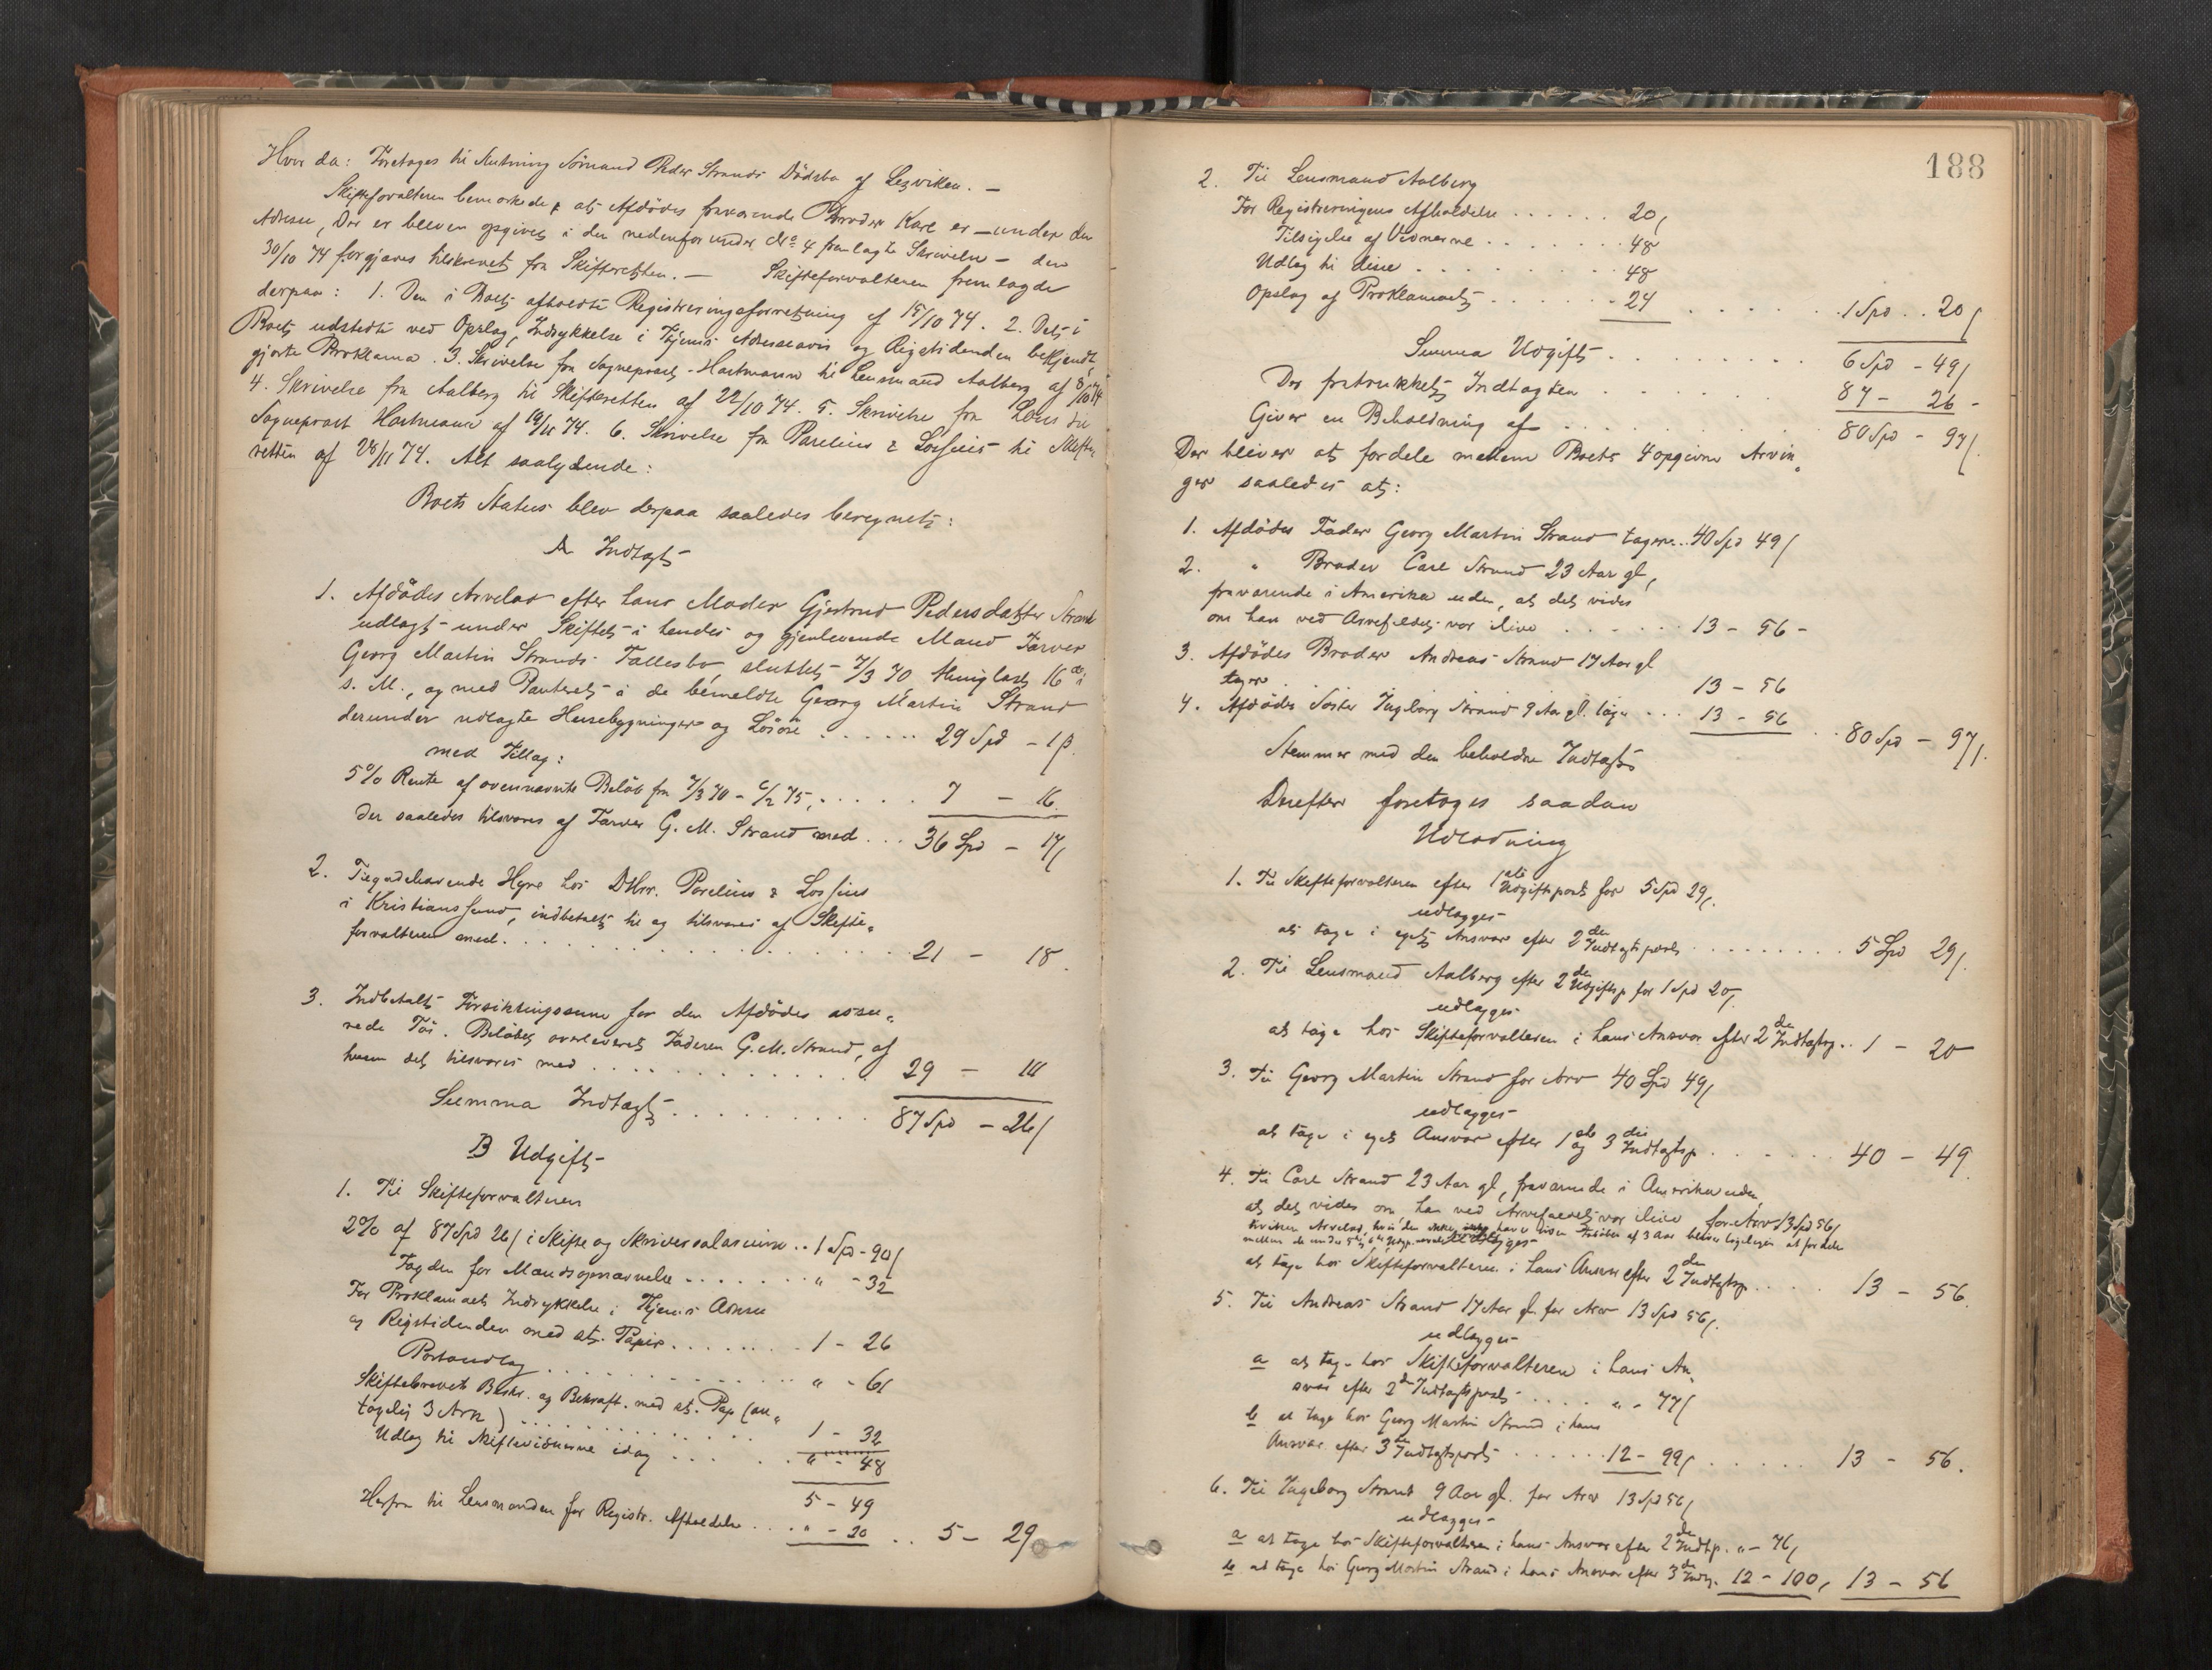 Hvor da: Foretoges til Slutning Sømand Peder Strands Dødsbo af Lexviken. —
Skifteforvalteren bemærkede, at Afdødes fraværende Broder Karl er — under den
Adresse, Der er bleven opgivet i den nedenfor under No 4 fremlagte Skrivelse — den
30/10 74 forgjæves tilskrevet fra Skifteretten. — Skifteforvalteren fremlagde
derpaa: 1. Den i Boet afholdte Registreringsforretning af 15/10 74. 2. Det i
Boet udstedte ved Opslag, Indrykkelse i Thjems Adresseavis og Rigstidenden bekjendt
gjorte Proklama. 3. Skrivelse fra Sogneprest Hartmann til Lensmand Aalberg af 8/10 74
4. Skrivelse fra Aalberg til Skifteretten af 22/10 74. 5. Skrivelse fra til
Sogneprest Hartmann af 74. 6. Skrivelse fra Parelius & Lossius til Skifte
retten af 28/11 74. Alt saalydende:
Boets Status blev derpaa saaledes beregnet:
A Indtægt
1. Afdødes Arvelod efter hans Moder Gjertrud Pedersdatter Strand
udlagt under Skiftet i hendes og gjenlevende Mand Farver
Georg Martin Strands Fællesbo, sluttet 7/3 70 thinglæst 16de
s. M., og med Panteret i de bemeldte Georg Martin Strand
derunder udlagte Husebygninger og Løsøre . . . . . . 29 Spd – 1 β.
med Tillæg:
5% Rente af ovennævnte Beløb fra 7/3 70 – 6/2 75, . . . . . 7 – 16
der saaledes tilsvares af Farver G. M. Strand med . . . 36 Spd – 17 ʃ
2. Tilgodehavende Hyre hos DHrr. Parelius & Lossius
i Kristianssund, indbetalt til og tilsvares af Skifte„
forvalteren med. . . . . . . . . . . . 21 – 18.
3. Indbetalt Forsikringssum for den Afdødes assu„
rede Tøi. Beløbet overleveret Faderen G. M. Strand, af
hvem det tilsvares med . . . . . . . . . 29 – 111
Summa Indtægt . . . . . . . . . 87 Spd – 26 ʃ
B Udgift
1. Til Skifteforvalteren
2% af 87 Spd 26 ʃ i Skifte og Skriversalarium . . 1 Spd – 90 ʃ
Tagden for Mandsopnævnelse . . . . . . . „ – 32
For Proklamaets Indrykkelse i Thjems Adresse
og Rigstidenden med st. Papir . . . . . . . 1 – 26
Portoudlæg . . . . . . . . . . . „ – 61
Skiftebrevets Beskr. og Bekræft. med st. Pap (an„
tagelig 3 Ark) . . . . . . . . . . 1 – 32
Udlæg til Skiftevidnerne idag . . . . . „ – 48
5 – 49
Herfra til Lensmanden for Registr. Afholdelse . . . „ – 20 . . 5 – 29
188
2. Til Lensmand Aalberg
For Registreringens Afholdelse . . . . . . 20 ʃ
Tilsigelse af Vidnerne . . . . . . . 48
Udlæg til disse . . . . . . . . . 48
Opslag af Proklamaet . . . . . . . 24 . . . . . . 1 Spd . . 20 ʃ
Summa Udgift . . . . . . . . . 6 Spd – 49 ʃ
Der fratrukket Indtægten . . . . . . 87 – 26 –
Giver en Beholdning af . . . . . . . . 80 Spd – 97 ʃ.
Der bliver at fordele mellem Boets 4 opgivne Arvin„
ger saaledes at:
1. Afdødes Fader Georg Martin Strand tager . . 40 Spd 49 ʃ
2. „ Broder Carl Strand 23 Aar gl,
fraværende i Amerika uden, at det vides
om han ved Arvefaldet var ilive . . . . . . 13 – 56 –
3. Afdødes Broder Andreas Strand 17 Aar gl
tager . . 13 – 56
4. Afdødes Søster Ingeborg Strand 9 Aar gl. tager . . . 13 – 56 . . 80 Spd – 97 ʃ.
Stemmer med den beholdne Indtægt
Derefter foretoges saadan
Udlodning
1. Til Skifteforvalteren efter 1ste Udgiftspost for 5 Spd 29 ʃ.
udlægges
at tage i eget Ansvar efter 2den Indtægtspost . . . . . . . . . 5 Spd 29 ʃ.
2. Til Lensmand Aalberg efter 2den Udgiftsp for 1 Spd 20 ʃ.
udlægges
at tage hos Skifteforvalteren i hans Ansvar efter 2den Indtægtsp. . . 1 – 20
3. Til Georg Martin Strand for Arv 40 Spd 49 ʃ
udlægges
at tage i eget Ansvar efter 1ste og 3die Indtægtsp . . . . . . 40 – 49
4. Til Carl Strand 23 Aar gl, fraværende i Amerika uden,
at det vides om han ved Arvefaldet var ilive for Arv 13 Spd 56 ʃ
hvilken Arvelod, hvis den ikke af 3 Aar bliver at fordele
mellem de under 5te og 6te udlægges
at tage hos Skifteforvalteren i hans Ansvar efter 2den Indtægtsp. . . . 13 – 56.
5. Til Andreas Strand 17 Aar gl. for Arv 13 Spd 56 ʃ.
udlægges
a at tage hos Skifteforvalteren i hans An„
svar efter 2den Indtægtspost . . . . „ – 77 ʃ
b at tage hos Georg Martin Strand i hans
Ansvar efter 3die Indtægtspost . . . . . . 12 – 99 ʃ . . . . . 13 – 56.
6. Til Ingeborg Strand 9 Aar gl. for Arv 13 Spd 56 ʃ
udlægges
a at tage hos Skifteforvalteren i hans Ansvar efter 2den Indtp. „ – 76 ʃ
b at tage hos Georg Martin Strand i hans Ansvar efter 3die Indtp. 12 – 100, 13 – 56